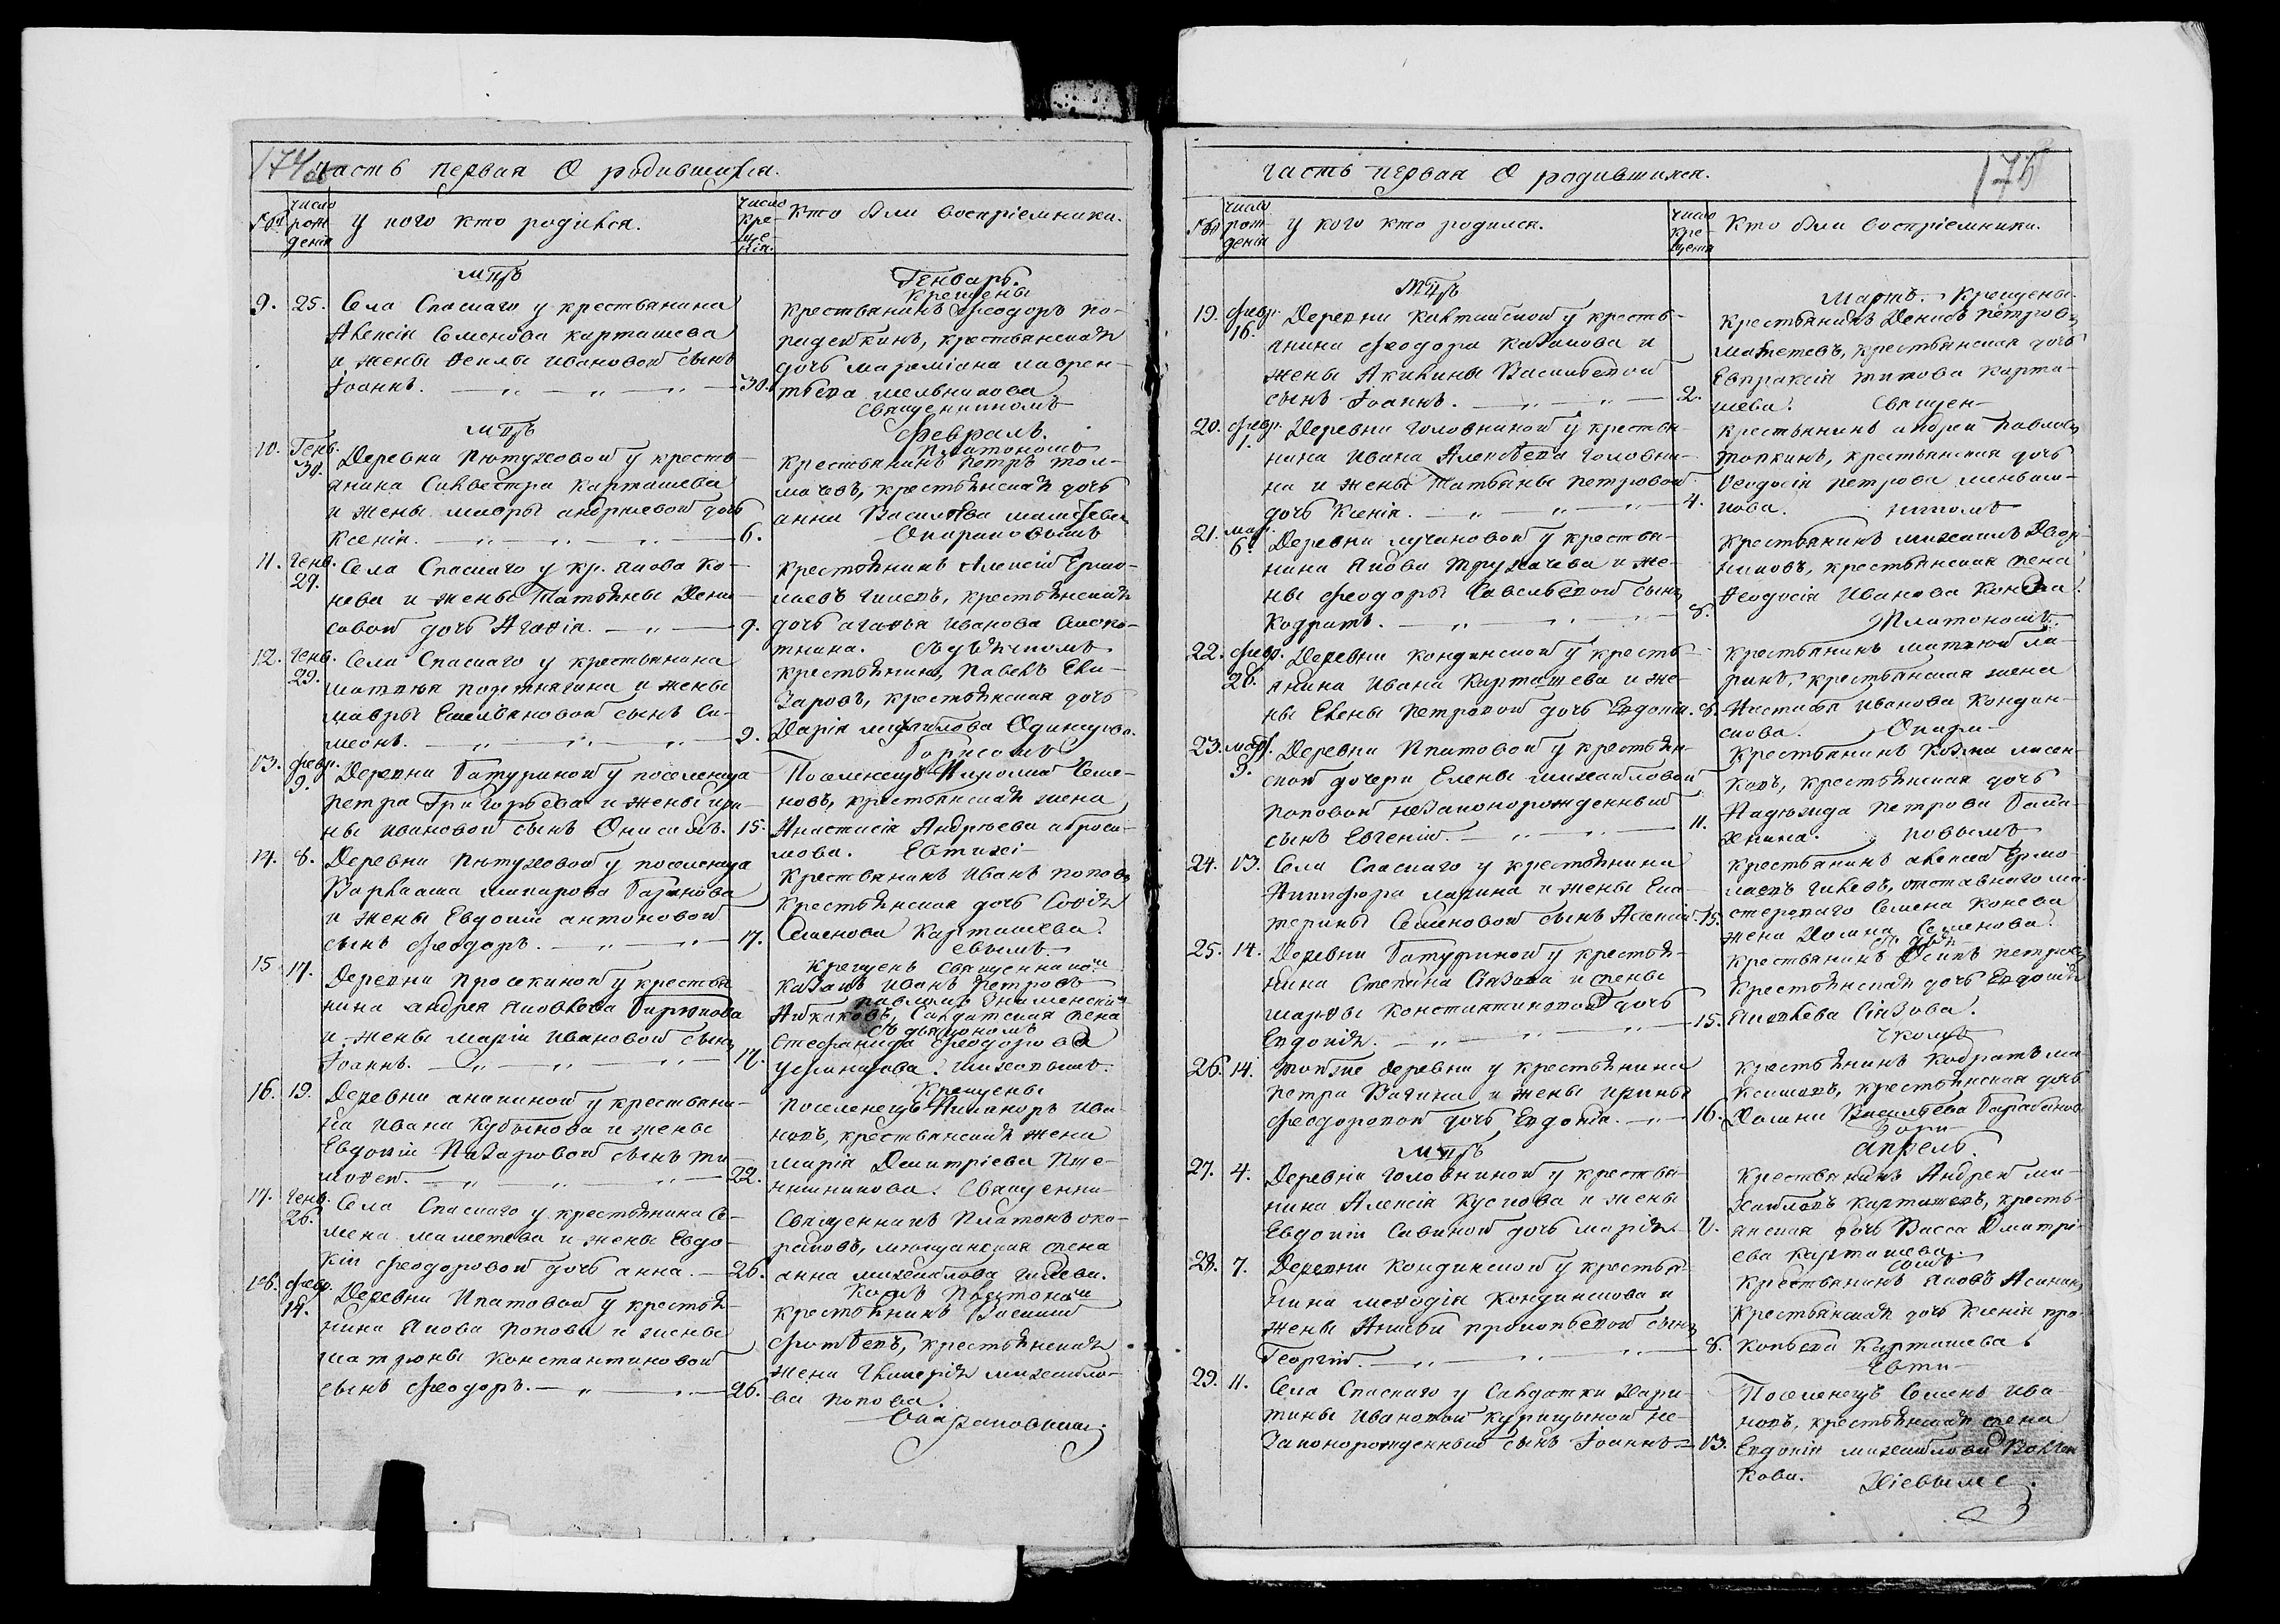 174/об
часть первая О родившихся.
число рож дения
у кого кто родился.
число кре- ще- нія.
Кто были воспріемники.
мца
Генварь.
Крещены
9. 25. Села Спаскаго у крестьянина
Алексія Семенова карташева
и жены Феклы ивановой сынъ
Іоаннъ. 30.
крестьянинъ Феодоръ по-
крестьянская
дочь лаврен-
тьева мельникова
Священникомъ
мца
Февраль.
Платономъ
10. Генв. 30. Деревни Пётуховой у кресть-
янина Силвестра Карташева
и жены мавры андреевой дочь
Ксенія. 6.
Крестьянинъ Петръ тол-
мачевъ, крестьянская дочь
анна Васильева
Опарановымъ
11. Генв. 29. Села Спаскаго у кр. якова Ко-
нева и жены Татьяны Дени-
совой дочь Агафія. 9.
крестьянинъ Алексій Ермо-
лаевъ гилевъ, крестьянская
дочь агафья иванова
съ дьячкомъ
12. Генв. 29. Села Спаскаго у крестьянина
матвея портнягина и жены
мавры Емельяновой сынъ Си-
меонъ. 9.
крестьянинъ Павелъ Ели-
заровъ, крестьянская дочь
Дарія михайлова Одинцова.
Борисомъ
13. Февр. 9. Деревни Батуриной у поселенца
петра Григорьева и жены ири-
ны ивановой сынъ Онисимъ. 15.
Поселенецъ Семе-
новъ, крестьянская жена
Анастасія Андреева абраса-
мова. Евтихі-
14. 8. Деревни Пётуховой у поселенца
Варлаама макарова Баранова
и жены Евдокіи антоновой
сынъ Феодоръ. 17.
Крестьянинъ Иванъ поповъ
крестьянская дочь Софія
Семенова Карташева.
евымъ
15 17. Деревни Просекиной у крестья-
нина андрея Яковлева
и жены маріи ивановой сынъ
Іоаннъ. 17.
Крещенъ священникомъ
казакъ Иванъ Петровъ
павломъ Знаменскимъ
Салдатская жена
съ дьякономъ
Стефанида Феодорова
16. 19. Деревни ананиной у крестьяни-
на ивана Кубышкова и жены
Евдокіи Назаровой сынъ Ти-
мофей. 22.
Крещены
поселенецъ Никаноръ ива-
новъ, крестьянская жена
марія Дмитріева Пше-
нишникова. Священни-
17. Генв. 26. Села Спаскаго у крестьянина Се-
мена маметева и жены Евдо-
кіи Феодоровой дочь анна. 26.
Священникъ Платонъ опа-
рановъ, мещанская жена
анна михайлова гилева.
комъ Платономъ
18. Февр. 14. Деревни Ипатовой у крестья-
нина Якова попова и жены
матроны константиновой
сынъ Феодоръ. 26.
крестьянинъ Василій
крестьянская
жена Гликерія михайло-
ва попова.
Опарановымъ
часть первая О родившихся.
175
число рож денія
у кого кто родился.
число кре- щенія
Кто были воспріемники.
мца
Мартъ. Крещены
19. Февр. 16. Деревни Кантайской у кресть-
янина Феодора Казакова и
жены Акилины Васильевой
сынъ Іоаннъ. 2.
крестьянинъ Денисъ петровъ
маметевъ, крестьянская дочь
Евпраксія титова карта-
шева. Священ-
20. Февр. 1. Деревни Головниной у крестья-
нина ивана Алексеева головни-
на и жены Татьяны петровой
дочь Ксенія. 4.
крестьянинъ андрей Павловъ
топкинъ, крестьянская дочь
Феодосія петрова меньши-
кова. никомъ
21. мар. 6. Деревни лучановой у крестья-
нина Якова Трухачева и же-
ны Феодоры Савельевой сынъ
Кодратъ. 8.
крестьянинъ михаилъ Двор-
никовъ, крестьянская жена
Феодосія иванова Конева.
Платономъ
22. Февр. 28. Деревни кондинской у кресть-
янина ивана Карташева и же-
ны Елены петровой дочь Евдокія. 8.
крестьянинъ матвей ла-
ринъ, крестьянская жена
Настасья иванова Кондин-
скова. Опара-
23. мар. 9. Деревни Ипатовой у крестьян-
ской дочери Елены михайловой
поповой незаконорожденный
сынъ Евгеній. 11.
Крестьянинъ Козма лисен-
ковъ, крестьянская дочь
Надежда петрова
новымъ
24. 13. Села Спаскаго у крестьянина
Никифора ларина и жены Ека-
терины Семеновой сынъ Алексій. 15.
крестьянинъ алексій Ермо-
лаевъ гилевъ, отставного ма-
стероваго Семена Конева
жена Домна Семенова.
съ дья-
25. 14. Деревни Батуриной у крестья-
нина Степана Сизова и жены
марфы константиновой дочь
Евдокія. 15.
крестьянинъ Осипъ петровъ
крестьянская дочь Евдокія
Яковлева Сизова.
чкомъ
26. 14. тойже деревни у крестьянина
петра Вагина и жены ирины
феодоровой дочь Евдокія. 16.
крестьянинъ Кодратъ ма-
ксимовъ, крестьянская дочь
Домна Васильева Барабанова
Бори-
мца
апрель.
27. 4. Деревни головниной у крестья-
нина Алексія Кускова и жены
Евдокіи Савиной дочь марія.
крестьянинъ Андрей ми-
хайловъ карташевъ, кресть-
янская дочь Васса Дмитрі-
ева карташева.
сомъ
28. 7. Деревни кондинской у крестья-
нина мефодія Кондинскова и
жены Анисьи прокопьевой сынъ
Георгій. 8.
крестьянинъ Яковъ
крестьянская дочь Ксенія про-
копьева Карташева
Евти-
29. 11. Села Спаскаго у Салдатки Хари-
тины ивановой курицыной не-
законорожденный сынъ Іоаннъ 13.
Поселенецъ Семенъ ива-
новъ, крестьянская жена
Евдокія михайлова
кова. Хіевымъ.